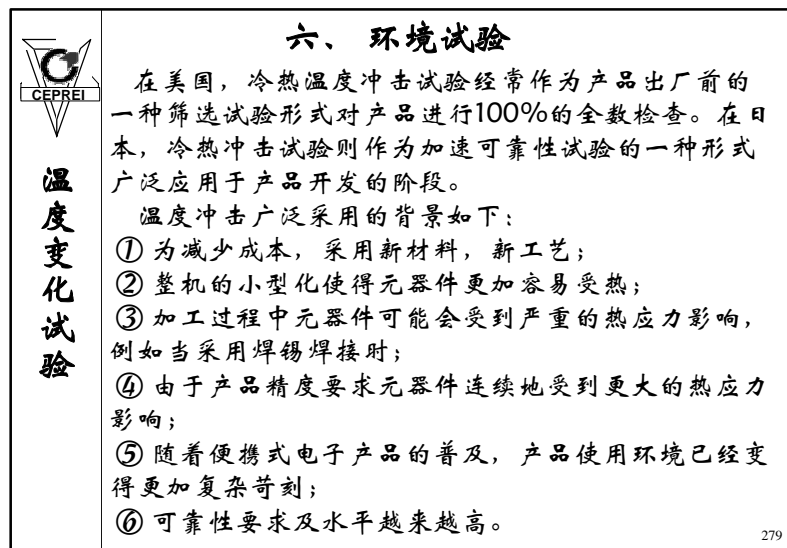 六、 环境试验
CEPREI
温度变化试验
在美国，冷热温度冲击试验经常作为产品出厂前的
一种筛选试验形式对产品进行100%的全数检查。在日
本，冷热冲击试验则作为加速可靠性试验的一种形式
广泛应用于产品开发的阶段。
温度冲击广泛采用的背景如下：
① 为减少成本，采用新材料，新工艺；
② 整机的小型化使得元器件更加容易受热；
③ 加工过程中元器件可能会受到严重的热应力影响，
例如当采用焊锡焊接时；
④ 由于产品精度要求元器件连续地受到更大的热应力
影响；
⑤ 随着便携式电子产品的普及，产品使用环境已经变
得更加复杂苛刻；
⑥ 可靠性要求及水平越来越高。
279